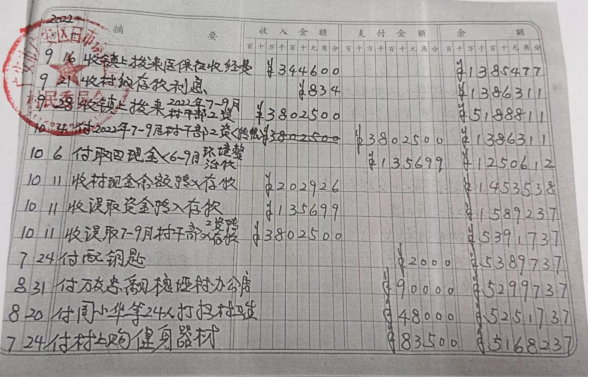 2022 摘 要 收入金额 支付金额 余 额
百十万千百十元角分 百十万千百十元角分 百十万千百十元角分
9 16 收镇上拨来医保征收经费 ¥344600 ¥1385477
9 21 收村的存款利息 ¥834 ¥1386311
9 28 收镇上拨来2022年7-9月村干部工资 ¥3802500 ¥5188811
10 24 付2022年7-9月村干部工资 ¥3802500 ¥3802500 ¥1386311
10 6 付取回现金<6-9月环境整治款 ¥135699 ¥1250612
10 11 收村现金余额转入存款 ¥202926 ¥1453538
10 11 收误取资金转入存款 ¥135699 ¥1589237
10 11 收误取7-9月村干部工资转入存款 ¥3802500 ¥5391737
7 24 付配钥匙 ¥2000 ¥5389737
8 31 付万 村办公房 ¥90000 ¥5299737
8 20 付周小华等24人打扫村卫生 ¥48000 ¥5251737
7 24 付村上购健身器材 ¥83500 ¥5168237